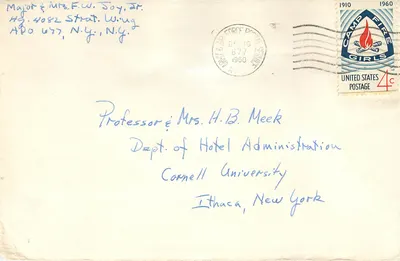 Major & Mrs F. W. Joy, Jr.
Hq. 4082 Strat. Wing
APO 677, N.Y., N.Y.
677
1960
1910 1960
CAMP FIRE
GIRLS
UNITED STATES
POSTAGE 4c
Professor & Mrs. H. B. Meek
Dept. of Hotel Administration
Cornell University
Ithaca, New York